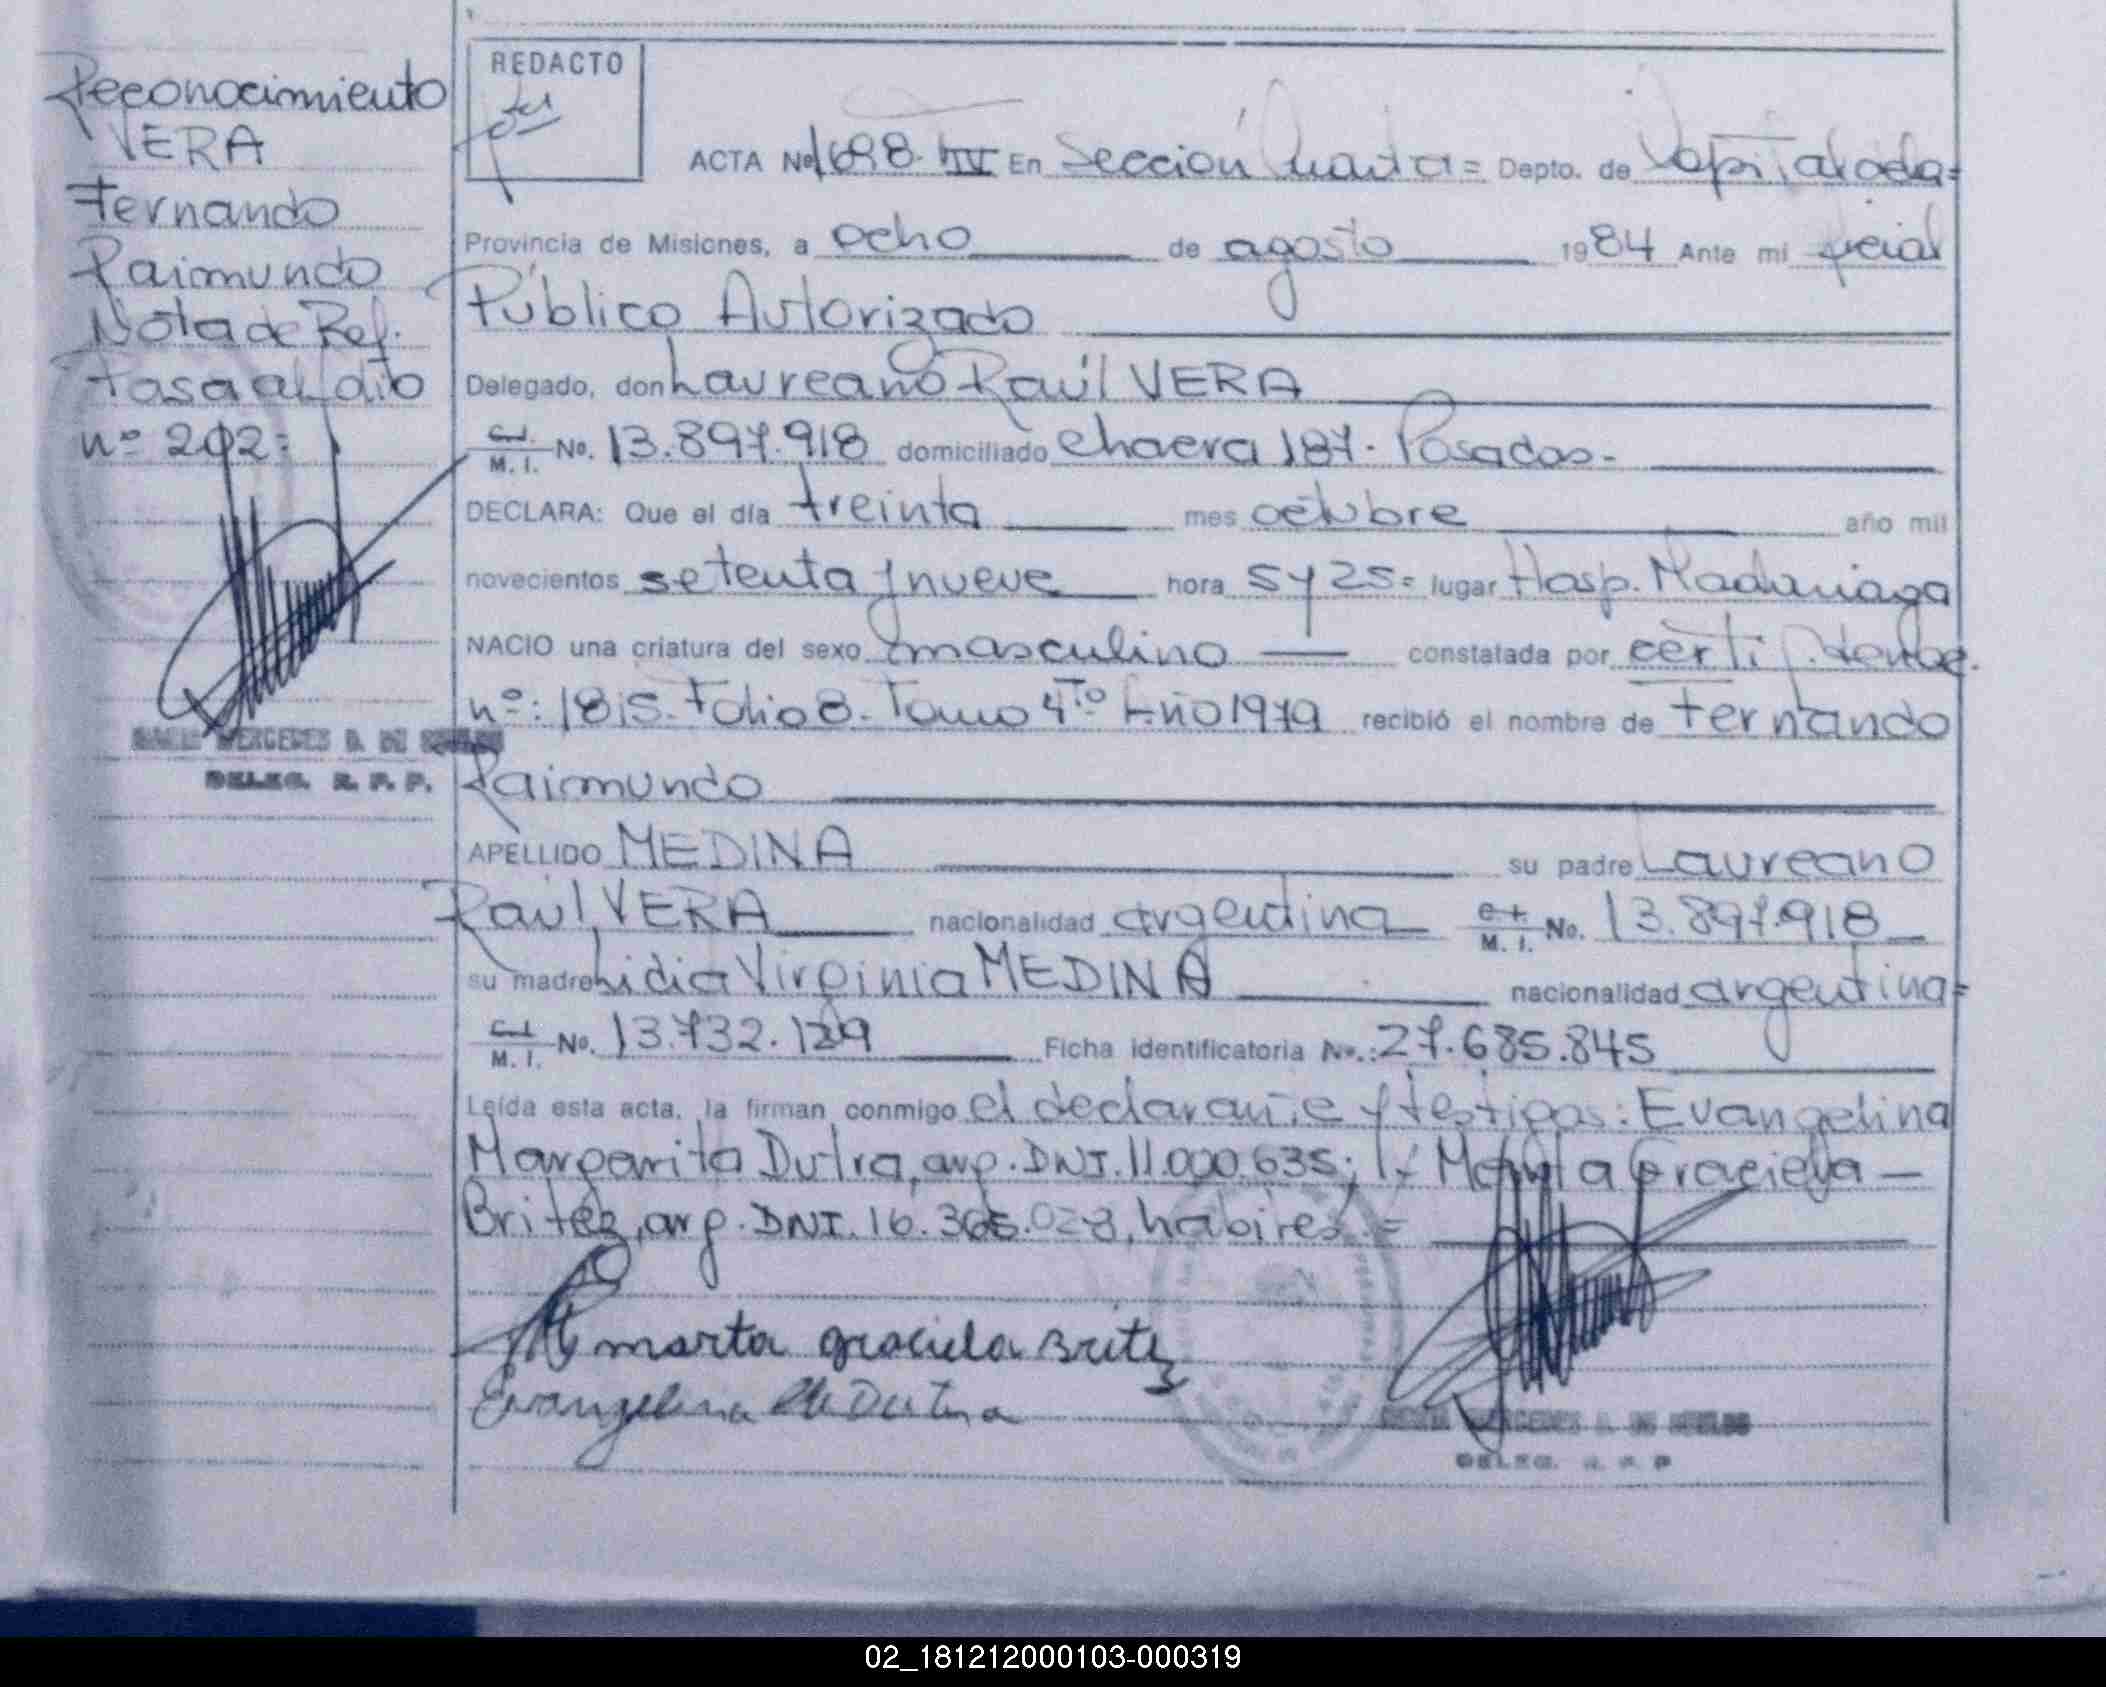 Reconocimiento
VERA
Fernando
Raimundo
Nota de Ref.
Pasa al dto
nº 202=
MERCEDES B. DE
DELEG. R. P. P.
REDACTO
ACTA Nº 1698. IV En Sección Cuarta = Depto. de Capital cda=
Provincia de Misiones, a ocho de agosto 1984 Ante mi oficial
Público Autorizado
Delegado, don Laureano Raúl VERA
C.I. M. I. No. 13.897.918 domiciliado chacra 187. Posadas.-
DECLARA: Que el día treinta mes octubre año mil
novecientos setenta y nueve hora 5 y 25= lugar Hosp. Madariaga
NACIO una criatura del sexo masculino constatada por certi
nº: 1815. Folio 8. Tomo 4to Año 1979 recibió el nombre de Fernando
Raimundo
APELLIDO MEDINA su padre Laureano
Raúl VERA nacionalidad argentina M. I. No. 13.897.918
su madre Lidia Virginia MEDINA nacionalidad argentina=
C.I. M. I. No. 13.732.129 Ficha identificatoria No.: 27.685.845
Leída esta acta, la firman conmigo el declarante y testigos: Evangelina
Margarita Dutra, arg. DNI. 11.000.635; y Marta Graciela —
Britez, arg. DNI. 16.365.028, hábiles =
marta graciela Britez
Evangelina M Dutra
MERCEDES B. DE
DELEG. R. P. P
02_181212000103-000319